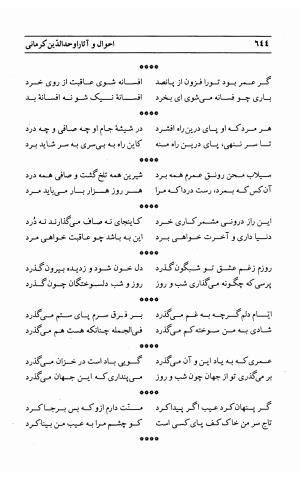 ۶۴۴ احوال و آثار اوحدالدّین کرمانی
****
گر عمر بود تو را فزون از پانصد افسانه شوی عاقبت از روی خرد
باری چو فسانه می‌شوی ای بخرد افسانهٔ نیک شو نه افسانهٔ بد
****
هر مرد که او پای درین راه افشرد در شیشهٔ جام او چه صافی و چه درد
تا سر ننهی، پای درین راه منه کاین راه به بی‌سری به سر شاید برد
****
سیلاب محن رونق عمرم همه برد شیرین همه تلخ گشت و صافی همه درد
آن‌کس که بمرد، رست دردا که مرا هر روز هزار بار می‌باید مرد
****
این راز درونی مشمر کاری خرد کاینجای نه صاف می‌گذارند نه دُرد
دنیا داری و آخرت خواهی برد این به باشد چو عاقبت خواهی مرد
****
روزم ز غم عشق تو شبگون گذرد دل خون شود و ز دیده بیرون گذرد
پرسی که چگونه می‌گذاری شب و روز روز و شب دلسوختگان چون گذرد
****
ایّام دلم گرچه به غم می‌گذرد بر فرق سرم پای ستم می‌گذرد
شادی به من سوخته کم می‌گذرد فی‌الجمله چنانکه هست هم می‌گذرد
****
عمری که به یاد این و آن می‌گذرد گویی باد است در خزان می‌گذرد
بر می‌گذری تو از جهان چون شب و روز می‌پنداری که این جهان می‌گذرد
****
گر پنهان کرد عیب اگر پیدا کرد منّت دارم ازو که بس برجا کرد
تاج سر من خاک کف پای کسی است کو چشم مرا به عیب من بینا کرد
****